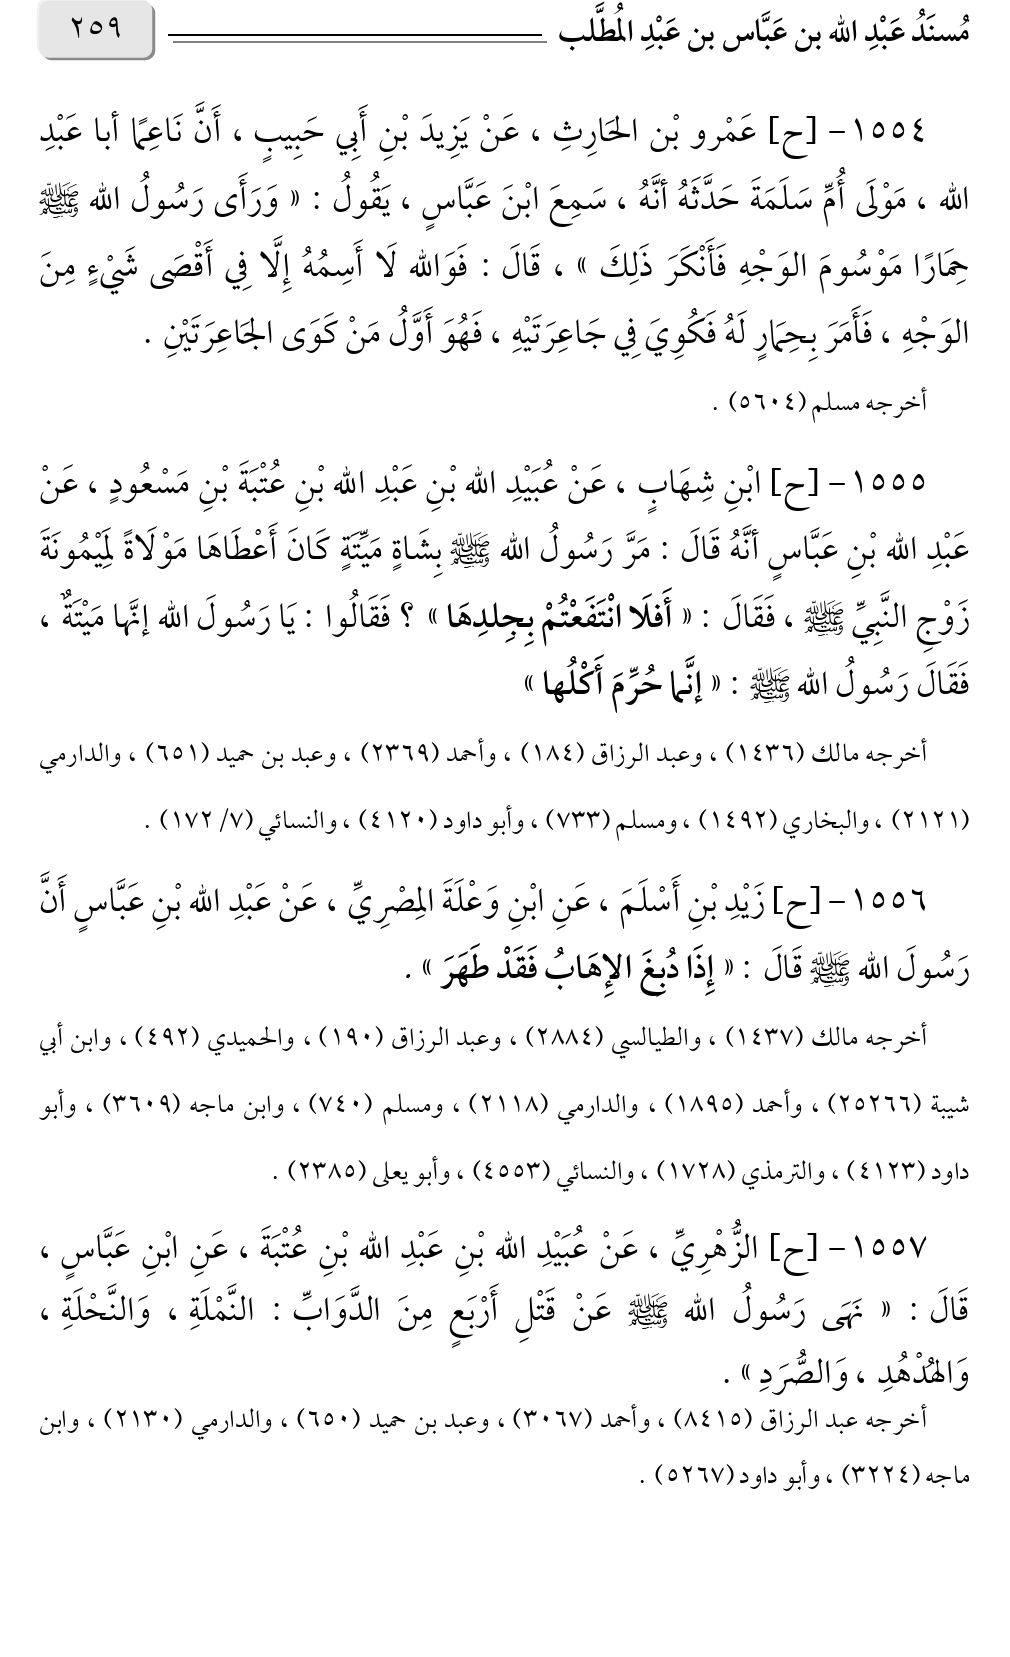 مُسنَدُ عَبْدِ الله بن عَبَّاس بن عَبْدِ المُطَّلب ٢٥٩
١٥٥٤ - [ح] عَمْرو بْن الحَارِثِ ، عَنْ يَزِيدَ بْنِ أَبِي حَبِيبٍ ، أَنَّ نَاعِمًا أبا عَبْدِ
الله ، مَوْلَى أُمِّ سَلَمَةَ حَدَّثَهُ أنَّهُ ، سَمِعَ ابْنَ عَبَّاسٍ ، يَقُولُ : « وَرَأَى رَسُولُ الله ﷺ
حِمَارًا مَوْسُومَ الوَجْهِ فَأَنْكَرَ ذَلِكَ » ، قَالَ : فَوَالله لَا أَسِمُهُ إِلَّا فِي أَقْصَى شَيْءٍ مِنَ
الوَجْهِ ، فَأَمَرَ بِحِمَارٍ لَهُ فَكُوِيَ فِي جَاعِرَتَيْهِ ، فَهُوَ أَوَّلُ مَنْ كَوَى الجَاعِرَتَيْنِ .
أخرجه مسلم (٥٦٠٤) .
١٥٥٥ - [ح] ابْنِ شِهَابٍ ، عَنْ عُبَيْدِ الله بْنِ عَبْدِ الله بْنِ عُتْبَةَ بْنِ مَسْعُودٍ ، عَنْ
عَبْدِ الله بْنِ عَبَّاسٍ أنَّهُ قَالَ : مَرَّ رَسُولُ الله ﷺ بِشَاةٍ مَيِّتَةٍ كَانَ أَعْطَاهَا مَوْلَاةً لِمَيْمُونَةَ
زَوْجِ النَّبِيِّ ﷺ ، فَقَالَ : « أَفلَا انْتَفَعْتُمْ بِجِلدِهَا » ؟ فَقَالُوا : يَا رَسُولَ الله إنَّها مَيْتَةٌ ،
فَقَالَ رَسُولُ الله ﷺ : « إنَّما حُرِّمَ أَكْلُها »
أخرجه مالك (١٤٣٦) ، وعبد الرزاق (١٨٤) ، وأحمد (٢٣٦٩) ، وعبد بن حميد (٦٥١) ، والدارمي
(٢١٢١) ، والبخاري (١٤٩٢) ، ومسلم (٧٣٣) ، وأبو داود (٤١٢٠) ، والنسائي (٧/ ١٧٢) .
١٥٥٦ - [ح] زَيْدِ بْنِ أَسْلَمَ ، عَنِ ابْنِ وَعْلَةَ المِصْرِيِّ ، عَنْ عَبْدِ الله بْنِ عَبَّاسٍ أَنَّ
رَسُولَ الله ﷺ قَالَ : « إِذَا دُبِغَ الإِهَابُ فَقَدْ طَهَرَ » .
أخرجه مالك (١٤٣٧) ، والطيالسي (٢٨٨٤) ، وعبد الرزاق (١٩٠) ، والحميدي (٤٩٢) ، وابن أبي
شيبة (٢٥٢٦٦) ، وأحمد (١٨٩٥) ، والدارمي (٢١١٨) ، ومسلم (٧٤٠) ، وابن ماجه (٣٦٠٩) ، وأبو
داود (٤١٢٣) ، والترمذي (١٧٢٨) ، والنسائي (٤٥٥٣) ، وأبو يعلى (٢٣٨٥) .
١٥٥٧ - [ح] الزُّهْرِيِّ ، عَنْ عُبَيْدِ الله بْنِ عَبْدِ الله بْنِ عُتْبَةَ ، عَنِ ابْنِ عَبَّاسٍ ،
قَالَ : « نَهَى رَسُولُ الله ﷺ عَنْ قَتْلِ أَرْبَعٍ مِنَ الدَّوَابِّ : النَّمْلَةِ ، وَالنَّحْلَةِ ،
وَالهُدْهُدِ ، وَالصُّرَدِ » .
أخرجه عبد الرزاق (٨٤١٥) ، وأحمد (٣٠٦٧) ، وعبد بن حميد (٦٥٠) ، والدارمي (٢١٣٠) ، وابن
ماجه (٣٢٢٤) ، وأبو داود (٥٢٦٧) .